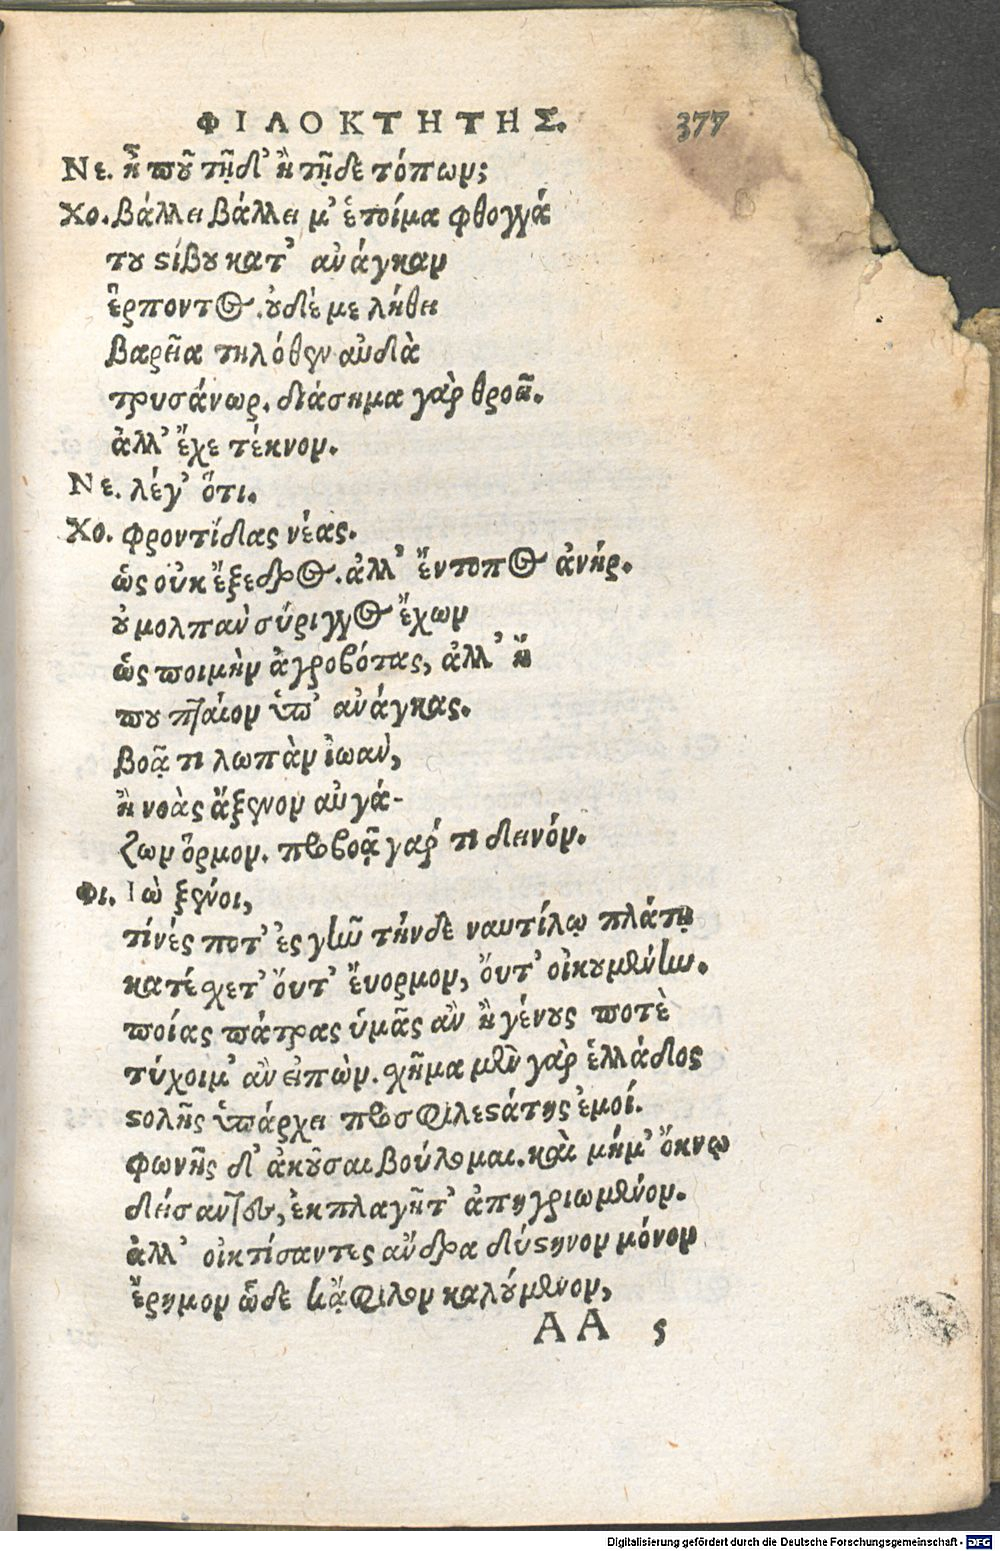 ΦΙΛΟΚΤΗΤΗΣ. 377
Νε. ἦ ποῦ τῇδ' ἢ τῇδε τόπων;
Χο. βάλλει βάλλει μ' ἑτοίμα φθογγά
του στίβου κατ' ἀνάγκαν
ἕρποντος. οὐδέ με λήθει
βαρεῖα τηλόθεν αὐδὰ
τρυσάνωρ. διάσημα γὰρ θροεῖ.
ἀλλ' ἔχε τέκνον.
Νε. λέγ' ὅτι.
Χο. φροντίδας νέας.
ὡς οὐκ ἔξεδρος. ἀλλ' ἔντοπος ἀνήρ.
οὐ μολπὰν σύριγγος ἔχων
ὡς ποιμὴν ἀγροβότας, ἀλλ' ἤ
που πταίων ὑπ' ἀνάγκας.
βοᾷ τηλωπὰν ἰωὰν,
ἢ ναὸς ἄξενον αὐγά-
ζων ὅρμον. προβοᾷ γάρ τι δεινόν.
Φι. Ἰὼ ξένοι,
τίνές ποτ' ἐς γῆν τήνδε ναυτίλῳ πλάτῃ
κατέσχετ' οὔτ' εὔορμον, οὔτ' οἰκουμένην.
ποίας πάτρας ὑμᾶς ἂν ἢ γένους ποτὲ
τύχοιμ' ἂν εἰπών. σχῆμα μὲν γὰρ ἑλλάδος
στολῆς ὑπάρχει προσφιλεστάτης ἐμοί.
φωνῆς δ' ἀκοῦσαι βούλομαι. καὶ μήμ' ὄκνῳ
δείσαντες, ἐκπλαγῆτ' ἀπηγριωμένον.
ἀλλ' οἰκτίσαντες ἄνδρα δύστηνον μόνον
ἔρημον ὧδε κᾄφιλον καλούμενον,
AA 5
Digitalisierung gefördert durch die Deutsche Forschungsgemeinschaft - DFG